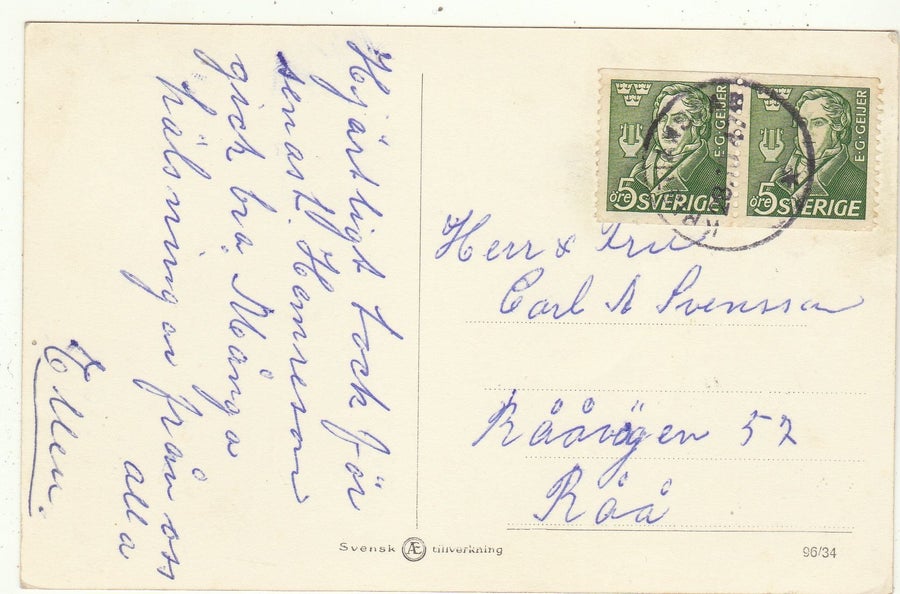 Hjärtligt tack för
senast! Hemresan
gick bra. Många
hälsningar från oss
alla
Ellen.
E·G·GEIJER
5 öre SVERIGE
E·G·GEIJER
5 öre SVERIGE
Herr & Fru
Carl A Svensson
Rååvägen 57
Råå
Svensk Æ tillverkning
96/34